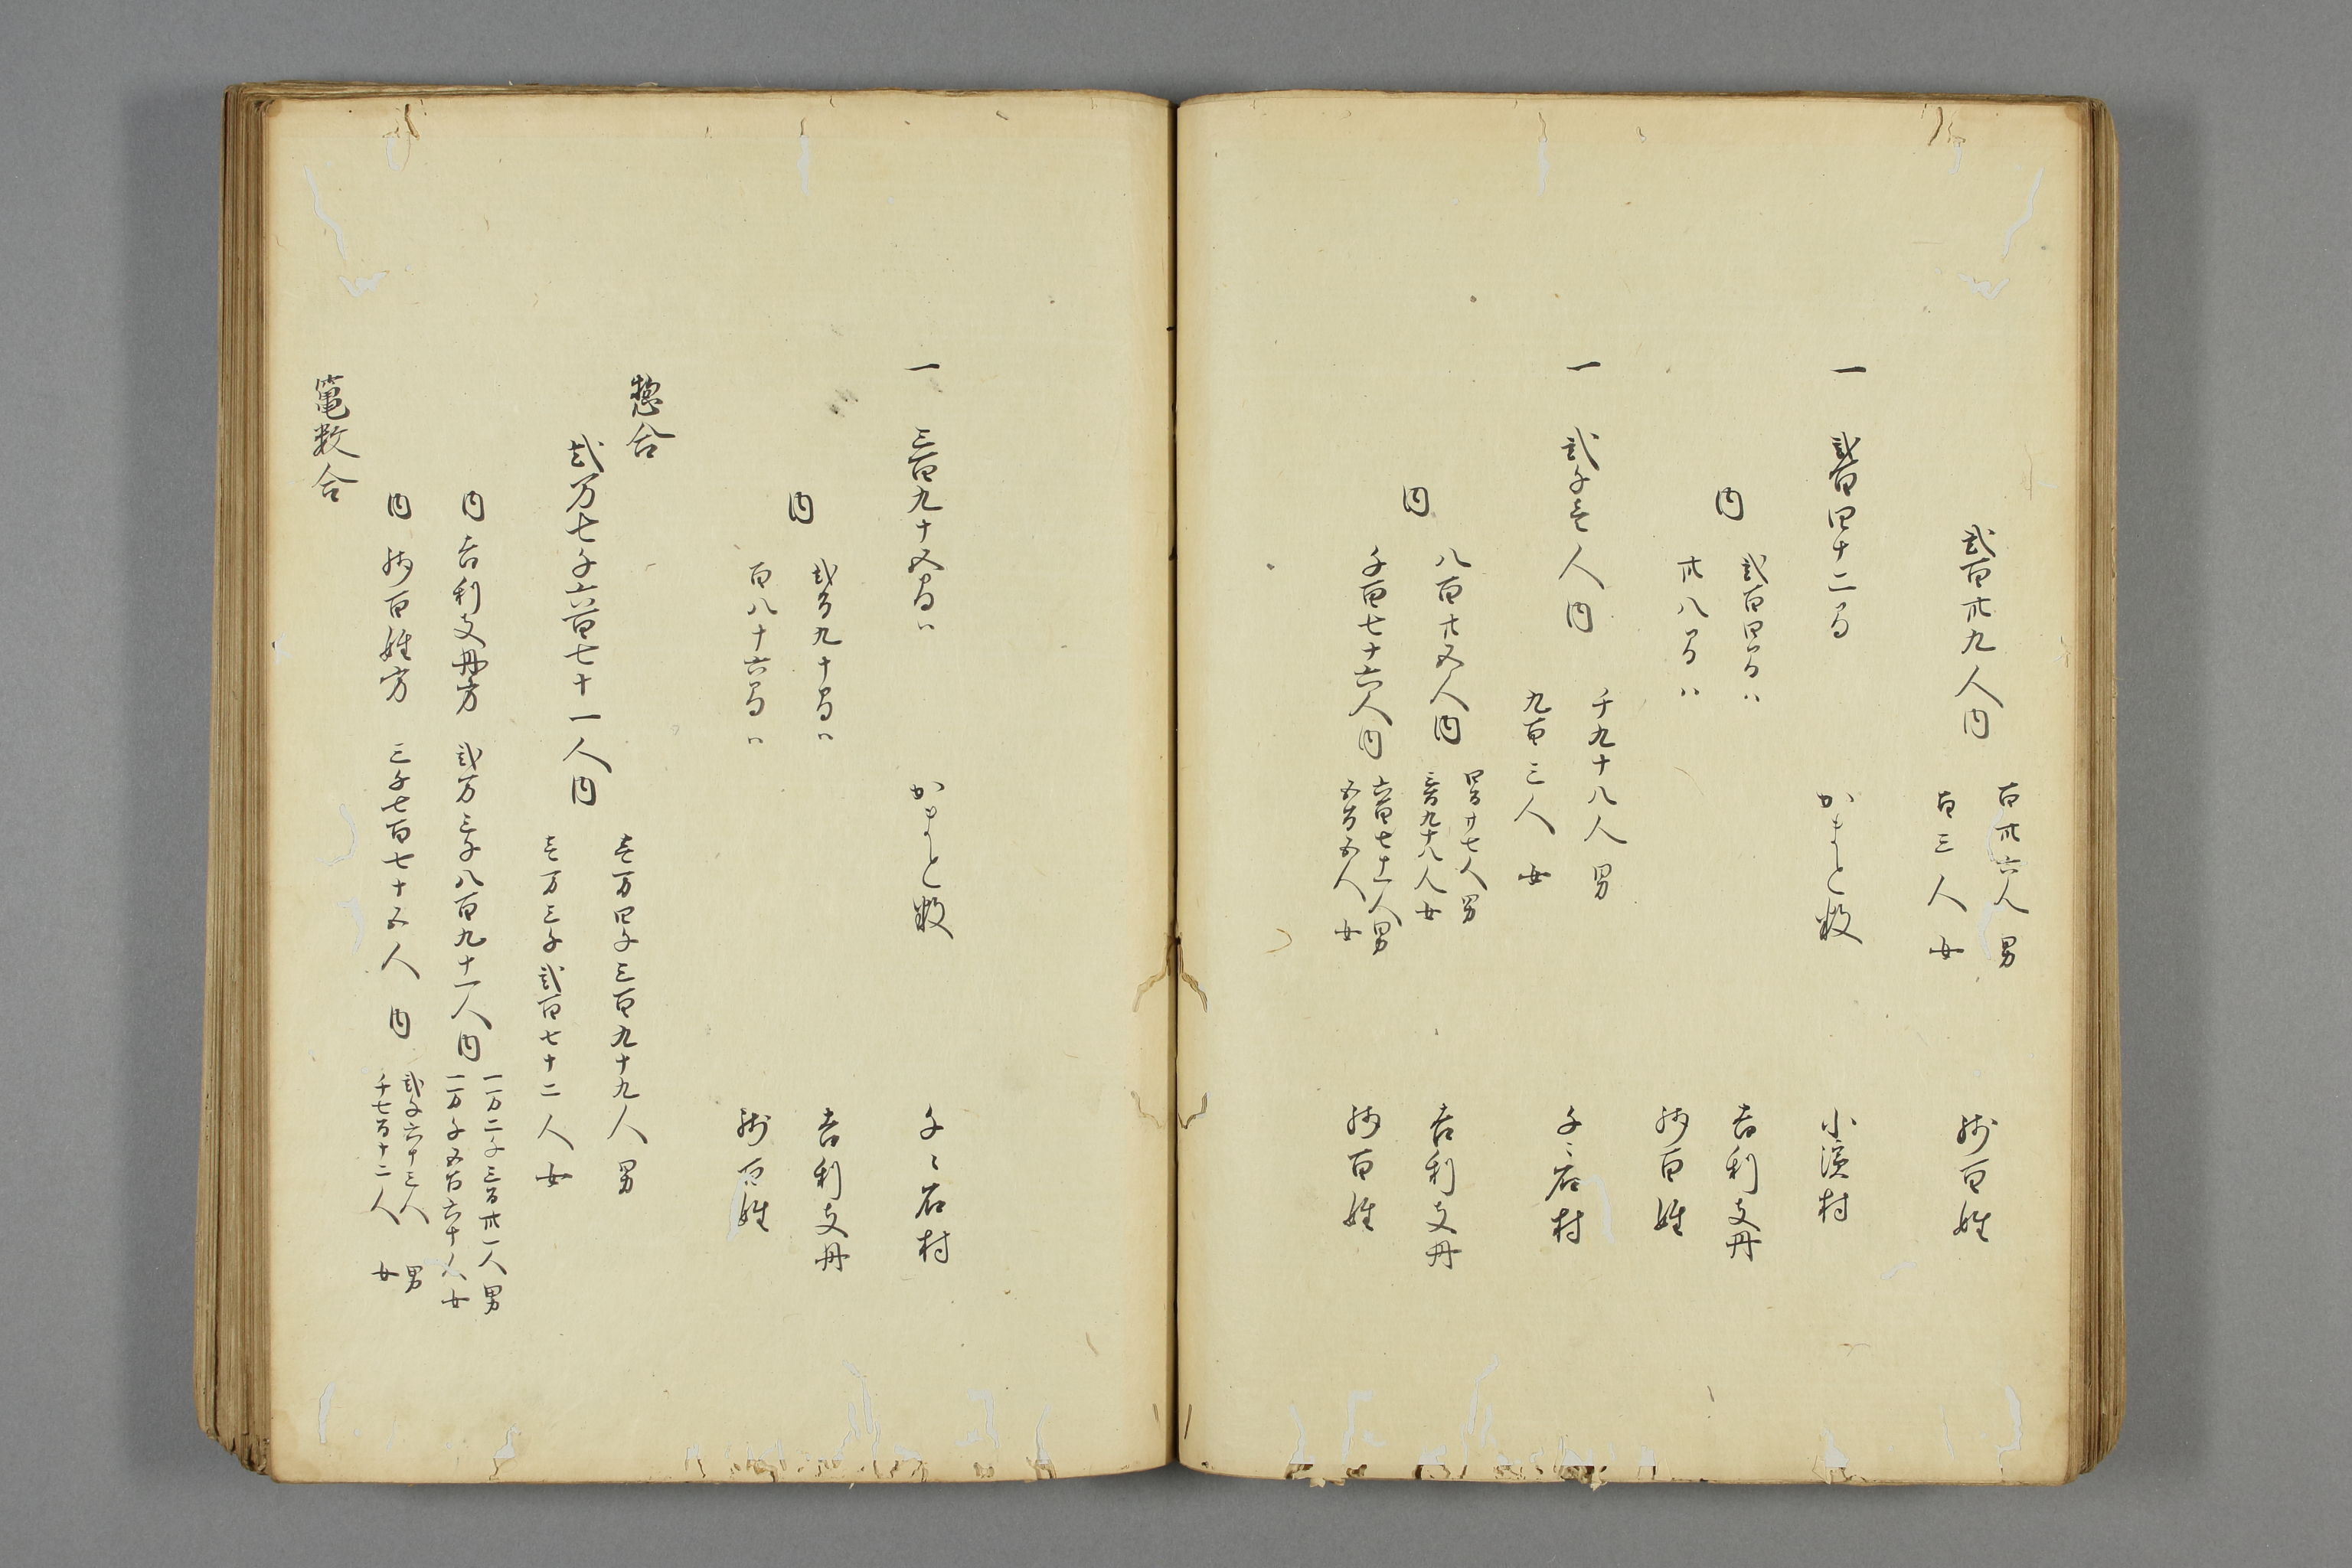 弐百卅九人内 百卅六人 男 残百姓
百三人 女
一 弐百四十二間 かまと数 小濱村
内 弐百四間ハ 吉利支丹
卅八間ハ 残百姓
一 弐千壱人内 千九十八人 男 千々岩村
九百三人 女
内 八百廿五人内 四百廿七人 男 吉利支丹
三百九十八人 女
千百七十六人内 六百七十一人 男 残百姓
五百五人 女
一 三百九十五間ハ かまと数 千々岩村
内 弐百九十間ハ 吉利支丹
百八十六間ハ 残百姓
惣合
弐万七千六百七十一人内 壱万四千三百九十九人 男
壱万三千弐百七十二人 女
内 吉利支丹方 弐万三千八百九十一人内 一万二千三百卅一人 男
一万千五百六十人 女
内 残百姓方 三千七百七十五人内 弐千六十三人 男
千七百十二人 女
竃数合